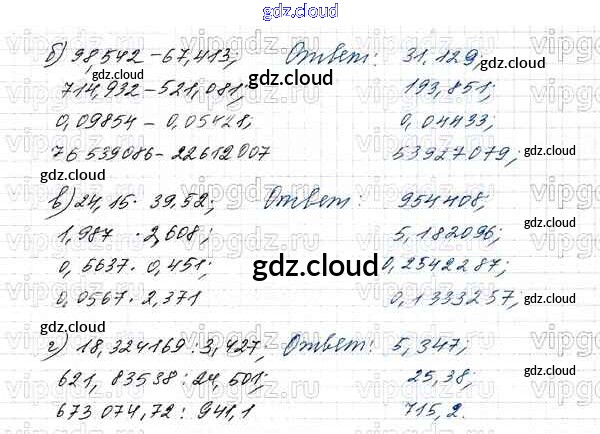 gdz.cloud
б) 98,542 - 67,413; Ответ: 31,129;
gdz.cloud gdz.cloud
714,932 - 521,081; gdz.cloud 193,851;
0,09854 - 0,05421; 0,04433;
76 539086 - 22612007 53927079;
gdz.cloud gdz.cloud
в) 24,15 · 39,52; Ответ: 954408;
gdz.cloud
1,987 · 2,608; 5,182096;
0,5637 · 0,451; gdz.cloud 0,2542287;
gdz.cloud gdz.cloud
0,0567 · 2,371 0,1333257;
gdz.cloud
г) 18,324169 : 3,427, Ответ: 5,347;
gdz.cloud
621, 83538 : 24,501; 25,38;
gdz.cloud gdz.cloud
673 074,72 : 941,1 715,2.